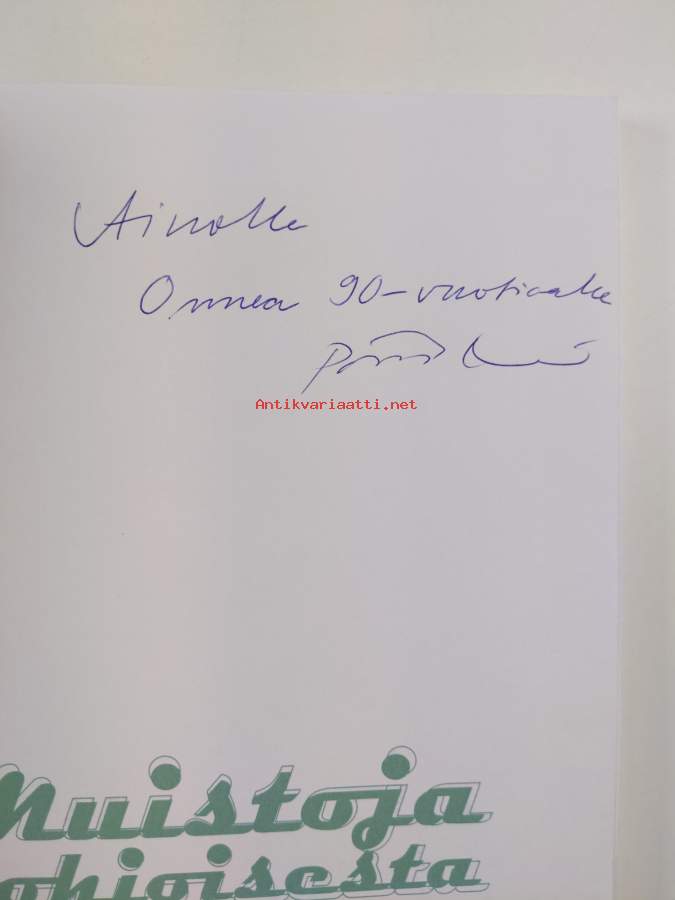 Ainolle
Onnea 90-vuotiaalle
Antikvariaatti.net
Muistoja
ohjoisesta